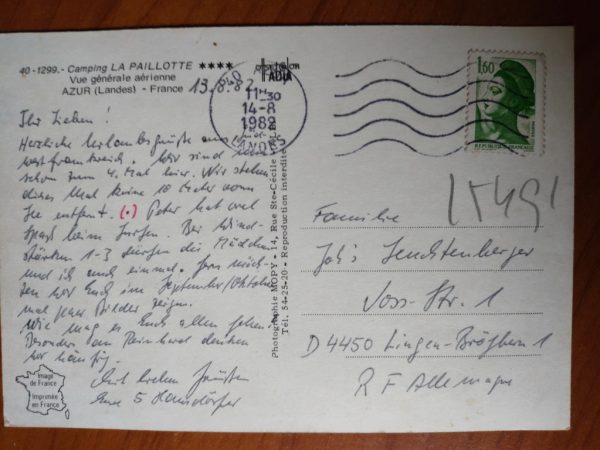 40-1299.- Camping LA PAILLOTTE ★★★★
Vue générale aérienne
AZUR (Landes) - France
13.8.82
11H30
14-8
1982
LANDES
1,60
RÉPUBLIQUE FRANÇAISE
Ihr Lieben!
Herzliche Urlaubsgrüße aus
westfrankreich. Wir sind nun
schon zum 4. Mal hier. Wir stehen
dieses Mal keine 10 Meter vom
See entfernt. (•) Peter hat viel
Spaß beim Surfen. Bei Wind-
stärken 1-3 dürfen die Mädchen
und ich auch einmal. Gern möch-
ten wir Euch im September/Oktober
mal paar Bilder zeigen.
Wie mag es Euch allen gehen?
Besonders an Reinhard denken
wir häufig.
Mit lieben Grüßen
Eure 5
Image
de France
Imprimée
en France
Photographie MOPY - 14, Rue Ste-Cécile
Tél. 54-25-20 - Reproduction interdite
15491
Familie
Joh's Leuchtenberger
Voss-Str. 1
D 4450 Lingen-Brögbern 1
R F Allemagne